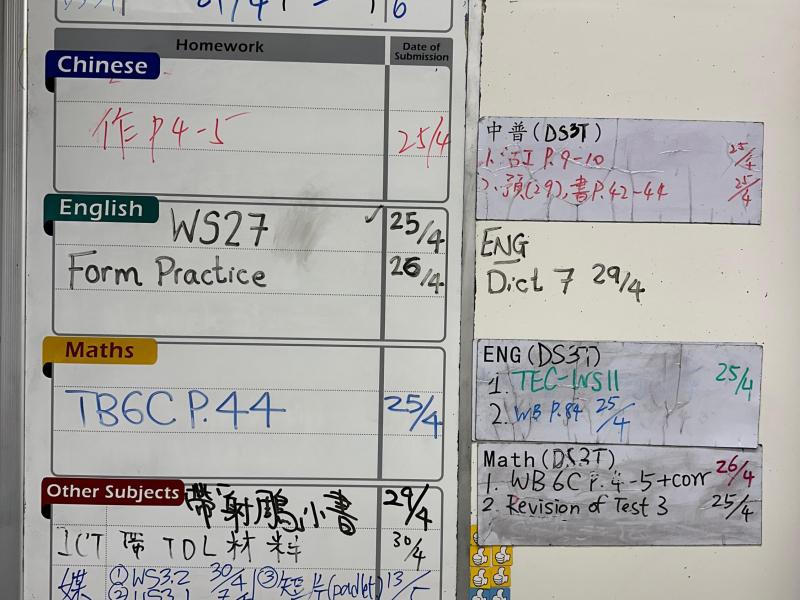 Homework
Date of Submission
Chinese
作 P4-5 25/4
English
WS27 ✓ 25/4
Form Practice 26/4
Maths
TB6C P.44 25/4
Other Subjects
帶射鵰小書 29/4
ICT 帶 TDL 材料 30/4
媒 ① WS3.2 30/4 ③ 短片(padlet) 13/5
中普(DS3T)
1. P.9-10 25/4
2. 預(29),書P.42-44 25/4
ENG
Dict 7 29/4
ENG(DS3T)
1. TEC-WS11 25/4
2. WB P.84 25/4
Math(DS3T)
1. WB 6C P.4-5+corr 26/4
2. Revision of Test 3 25/4